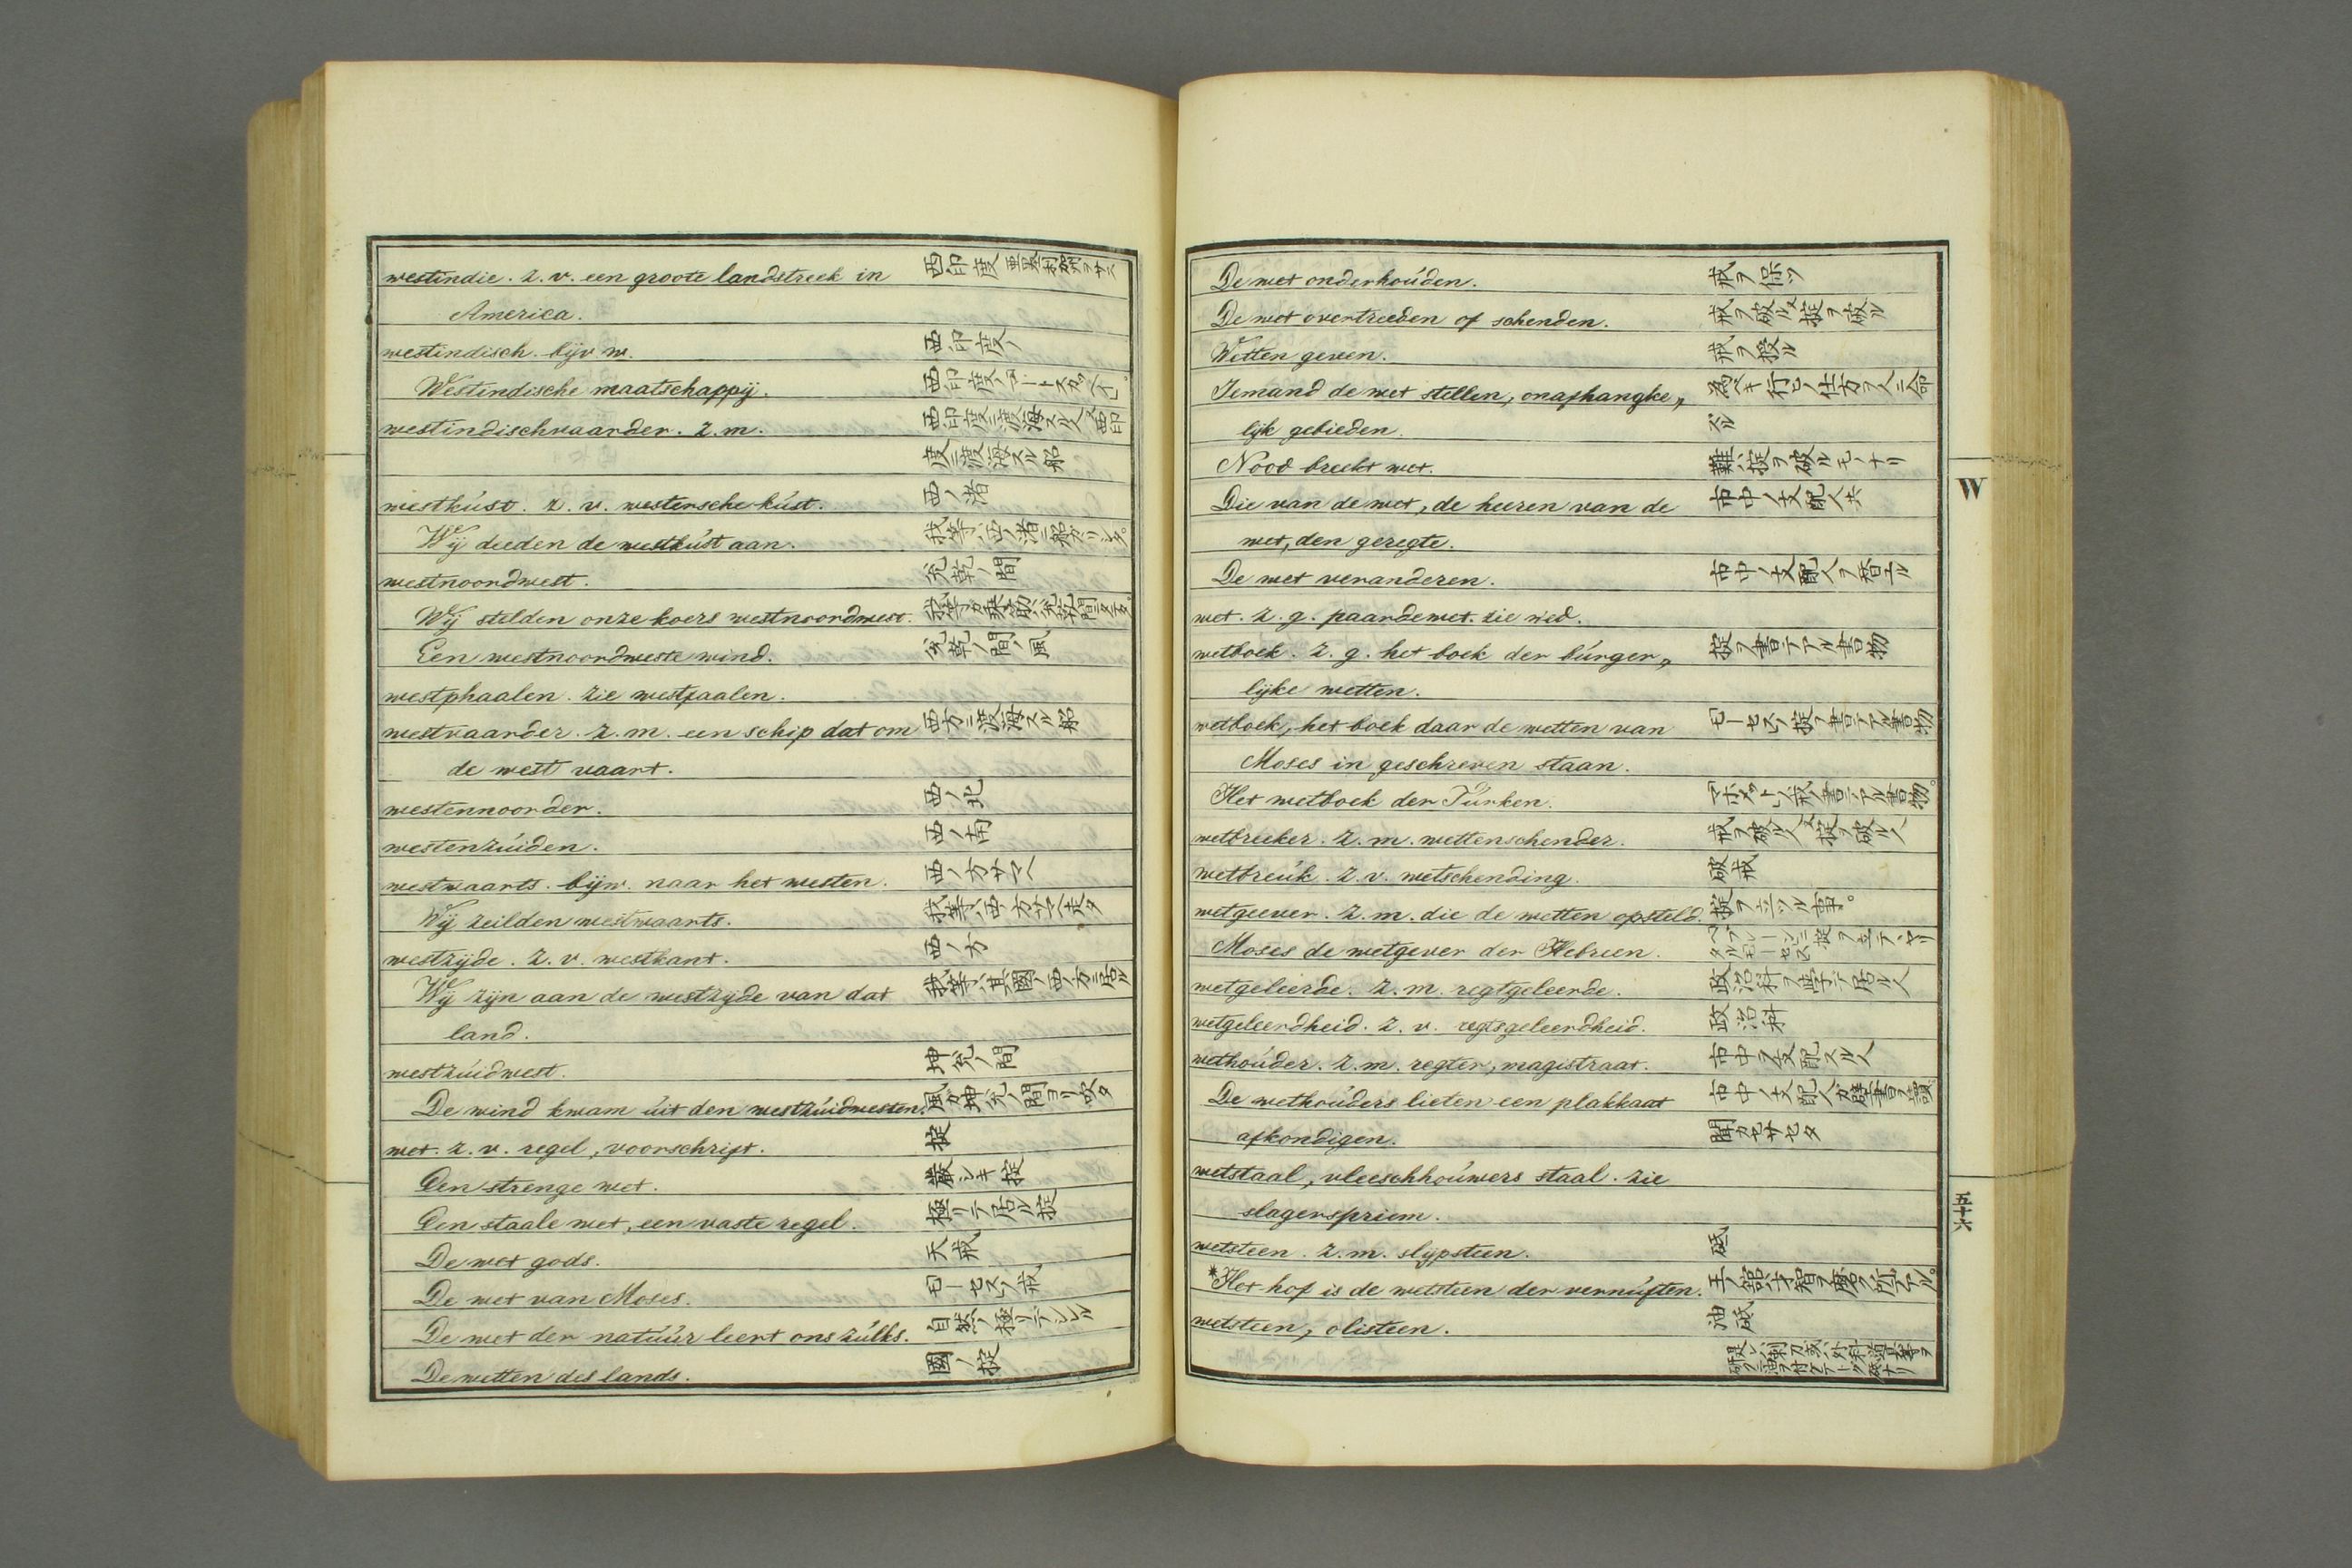 westindie. z. v. een groote landstreek in 西印度 亜墨利加洲ヲサス
America.
westindisch. bijv w. 西印度ノ
Westindische maatschappij. 西印度ノ
westindischvaarder. z. m. 西印度ニ渡海スル人又西印
度ニ渡海スル船
westkúst. z. v. westersche kúst. 西ノ渚
Wij deeden de westkúst aan. 我等ハ西ノ渚ニ
westnoordwest. 兌乾ノ間
Wij stelden onze koers westnoordwest. 我等ガ
Een westnoordweste wind. 兌乾ノ間ノ風
westphaalen. zie westfaalen.
westvaarder. z. m. een schip dat om 西方ニ渡海スル船
de west vaart.
westennoorder. 西ノ北
westenzúiden. 西ノ南
westwaarts. bijw. naar het westen. 西ノ方サマヘ
Wij zeilden westwaarts. 我等ハ西ノ方サマヘ走タ
westzijde. z. v. westkant. 西ノ方
Wij zijn aan de westzijde van dat 我等ハ其國ノ西ノ方ニ居ル
land.
westzúidwest. 坤兌ノ間
De wind kwam úit den westzúidwesten. 風ガ坤兌ノ間ヨリ吹タ
wet. z. v. regel, voorschrift. 掟
Een strenge wet. 嚴シキ掟
Een staale wet, een vaste regel. 極リテ居ル掟
De wet gods. 天戒
De wet van Moses. モーセスノ戒
De wet der natúúr leert ons zúlks. 自然ノ極リテシル
De wetten des lands. 國ノ掟
De wet onderhoúden. 戒ヲ保ツ
De wet overtreeden of schenden. 戒ヲ破ル又掟ヲ破ル
Wetten geven. 戒ヲ授ル
Iemand de wet stellen, onafhangke„ 為ベキ行ヒノ仕方ヲ人ニ命
lijk gebieden. ズル
Nood breekt wet. 難ハ掟ヲ破ルモノナリ
Die van de wet, de heeren van de 市中ノ支配人共
wet, den geregte.
De wet veranderen. 市中ノ支配人ヲ替エル
wet. z. g. paardewet. zie wed.
wetboek. z. g. het boek der búrger„ 掟ヲ書テアル書物
lijke wetten.
wetboek, het boek daar de wetten van モーセスノ掟ヲ書テアル書物
Moses in geschreven staan.
Het wetboek der Túrken. マホメットノ戒ヲ書テアル書物。
wetbreeker. z. m. wettenschender. 戒ヲ破ル人又掟ヲ破ル人
wetbreúk. z. v. wetschending. 破戒
wetgeever. z. m. die de wetten opsteld. 掟ヲ立ツル事。
Moses de wetgever der Hebreen.
wetgeleerde. z. m. regtgeleerde. 政治科ヲ學テ居ル人
wetgeleerdheid. z. v. regtsgeleerdheid. 政治科
wethoúder. z. m. regter, magistraat. 市中ヲ支配スル人
De wethoúders lieten een plakkaat 市中ノ支配人ガ壁書ヲ讀
afkondigen. 聞カセサセタ
wetstaal, vleeschhoúwers staal. zie
slagerspriem.
wetsteen. z. m. slijpsteen. 砥
*Het hof is de wetsteen der vernúften. 王ノ舘ハ才智ヲ磨ク所デアル。
wetsteen, oliesteen. 油砥
W
五十六